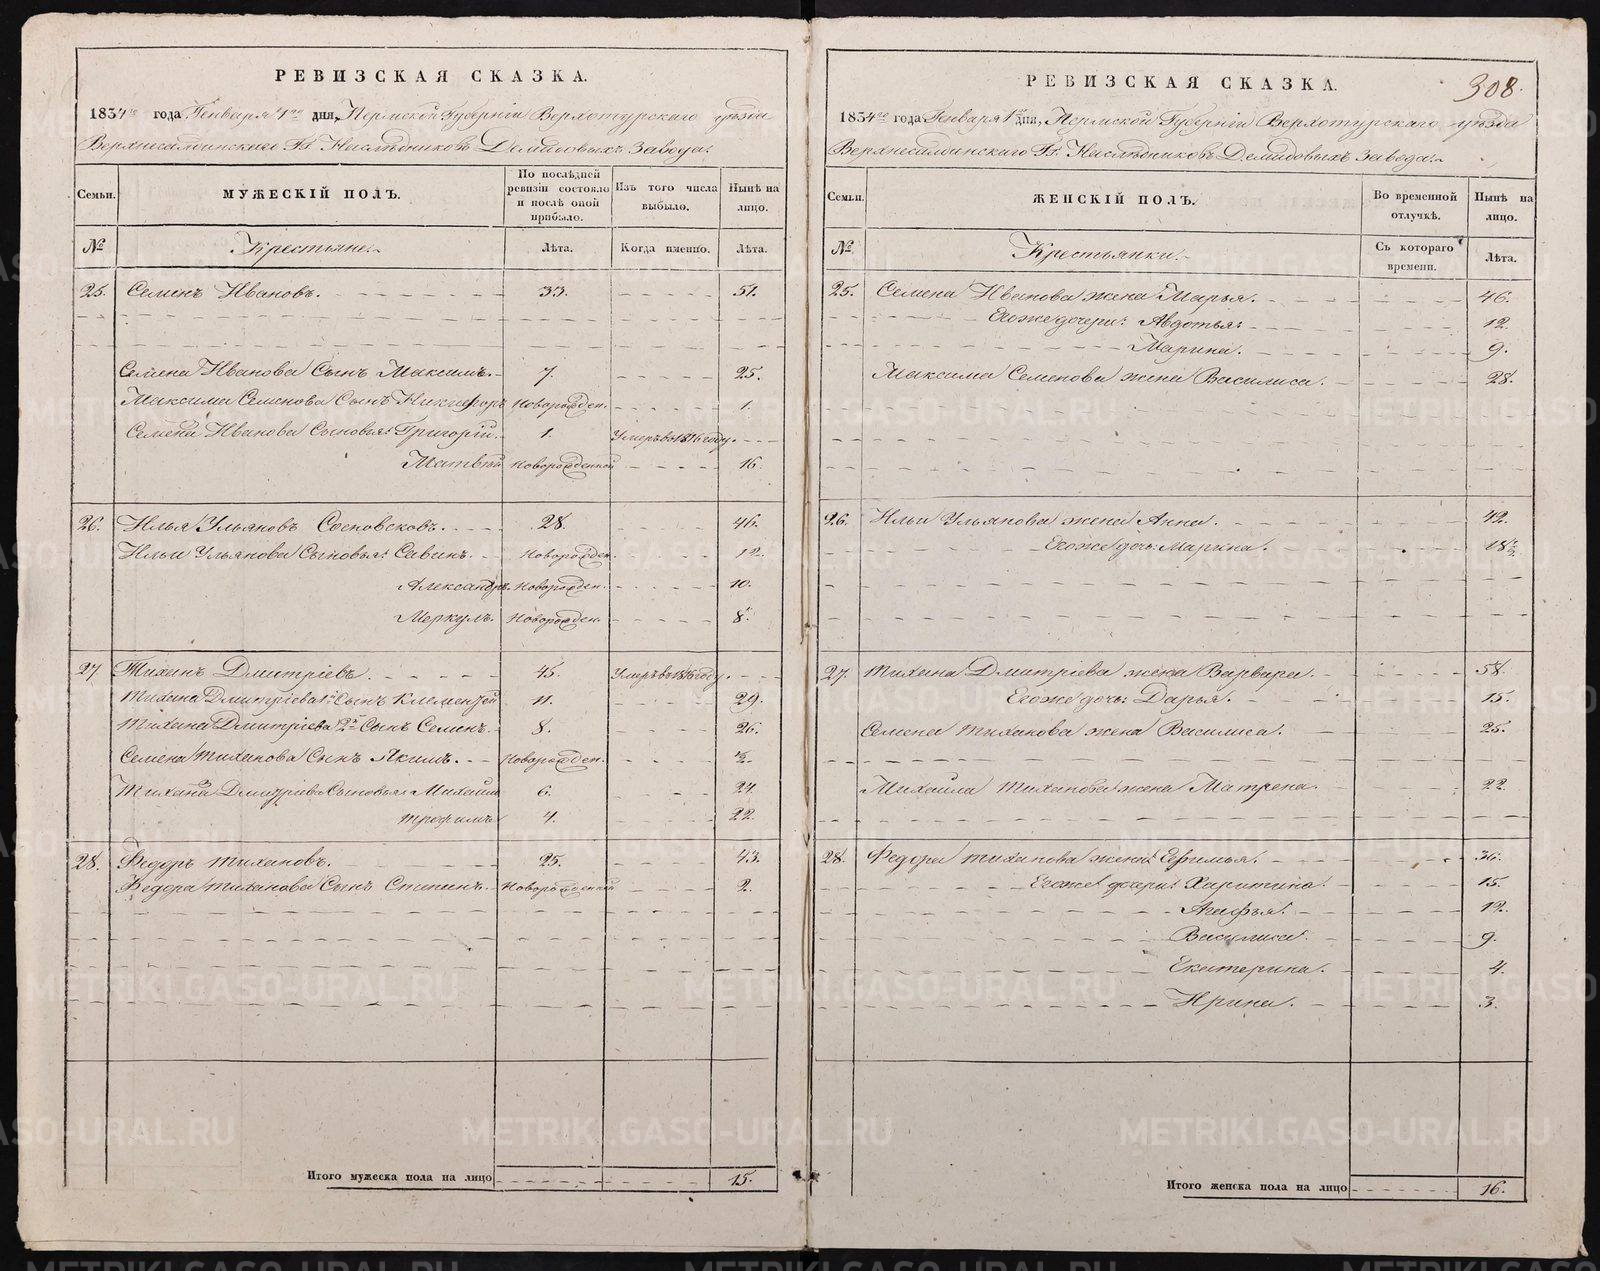 РЕВИЗСКАЯ СКАЗКА.
1834го года Генваря 1го дня, Пермской Губерніи Верхотурскаго уѣзда
Верхнесалдинскаго Гг. Наслѣдниковъ Демидовыхъ завода.
Семьи. МУЖЕСКІЙ ПОЛЪ. По послѣдней ревизіи состояло и послѣ оной прибыло. Изъ того числа выбыло. Нынѣ на лицо.
№ Крестьяне. Лѣта. Когда именно. Лѣта.
25. Семенъ Ивановъ. 33. 51.
Семена Иванова Сынъ Максимъ. 7. 25.
Максима Семенова Сынъ Никифоръ новорожден. 1.
Семена Иванова Сыновья: Григорій. 1. Умеръ въ 1816 году.
Матвѣй новорожденной 16.
26. Илья Ульяновъ Сосновсковъ. 28. 46.
Ильи Ульянова Сыновья: Савинъ. новорожден. 12.
Александръ. новорожден. 10.
Меркулъ. новорожден. 8.
27. Тиханъ Дмитріевъ. 45. Умеръ въ 1816 году.
Тихана Дмитріева 1й Сынъ Клементей 11. 29.
Тихана Дмитріева 2й Сынъ Семенъ. 8. 26.
Семена Тиханова Сынъ Якимъ. новорожден. 1/2
Тихана Дмитріева Сыновья: Михайло 6. 24.
Трофимъ. 4. 22.
28. Федоръ Тихановъ. 25. 43.
Федора Тиханова Сынъ Степанъ. новорожденной 2.
Итого мужеска пола на лицо 15.
308.
РЕВИЗСКАЯ СКАЗКА.
1834го года Генваря 1го дня, Пермской Губерніи Верхотурскаго уѣзда
Верхнесалдинскаго Гг. Наслѣдниковъ Демидовыхъ завода.
Семьи. ЖЕНСКІЙ ПОЛЪ. Во временной отлучкѣ. Нынѣ на лицо.
№ Крестьянки. Съ котораго времени. Лѣта.
25. Семена Иванова жена Марья. 46.
Его же дочери: Авдотья: 12.
Марина. 9.
Максима Семенова жена Василиса. 28.
26. Ильи Ульянова жена Анна. 42.
Его же дочь: Марина. 18
27. Тихана Дмитріева жена Варвара. 58.
Его же дочь: Дарья. 15.
Семена Тиханова жена Василиса. 25.
Михаила Тиханова жена Матрена. 22.
28. Федора Тиханова жена: Ефимья. 36.
Его же дочери: Харитина. 15.
Агафья. 12.
Василиса. 9.
Екатерина. 4.
Ирина. 3.
Итого женска пола на лицо 16.
METRIKI.GASO-URAL.RU